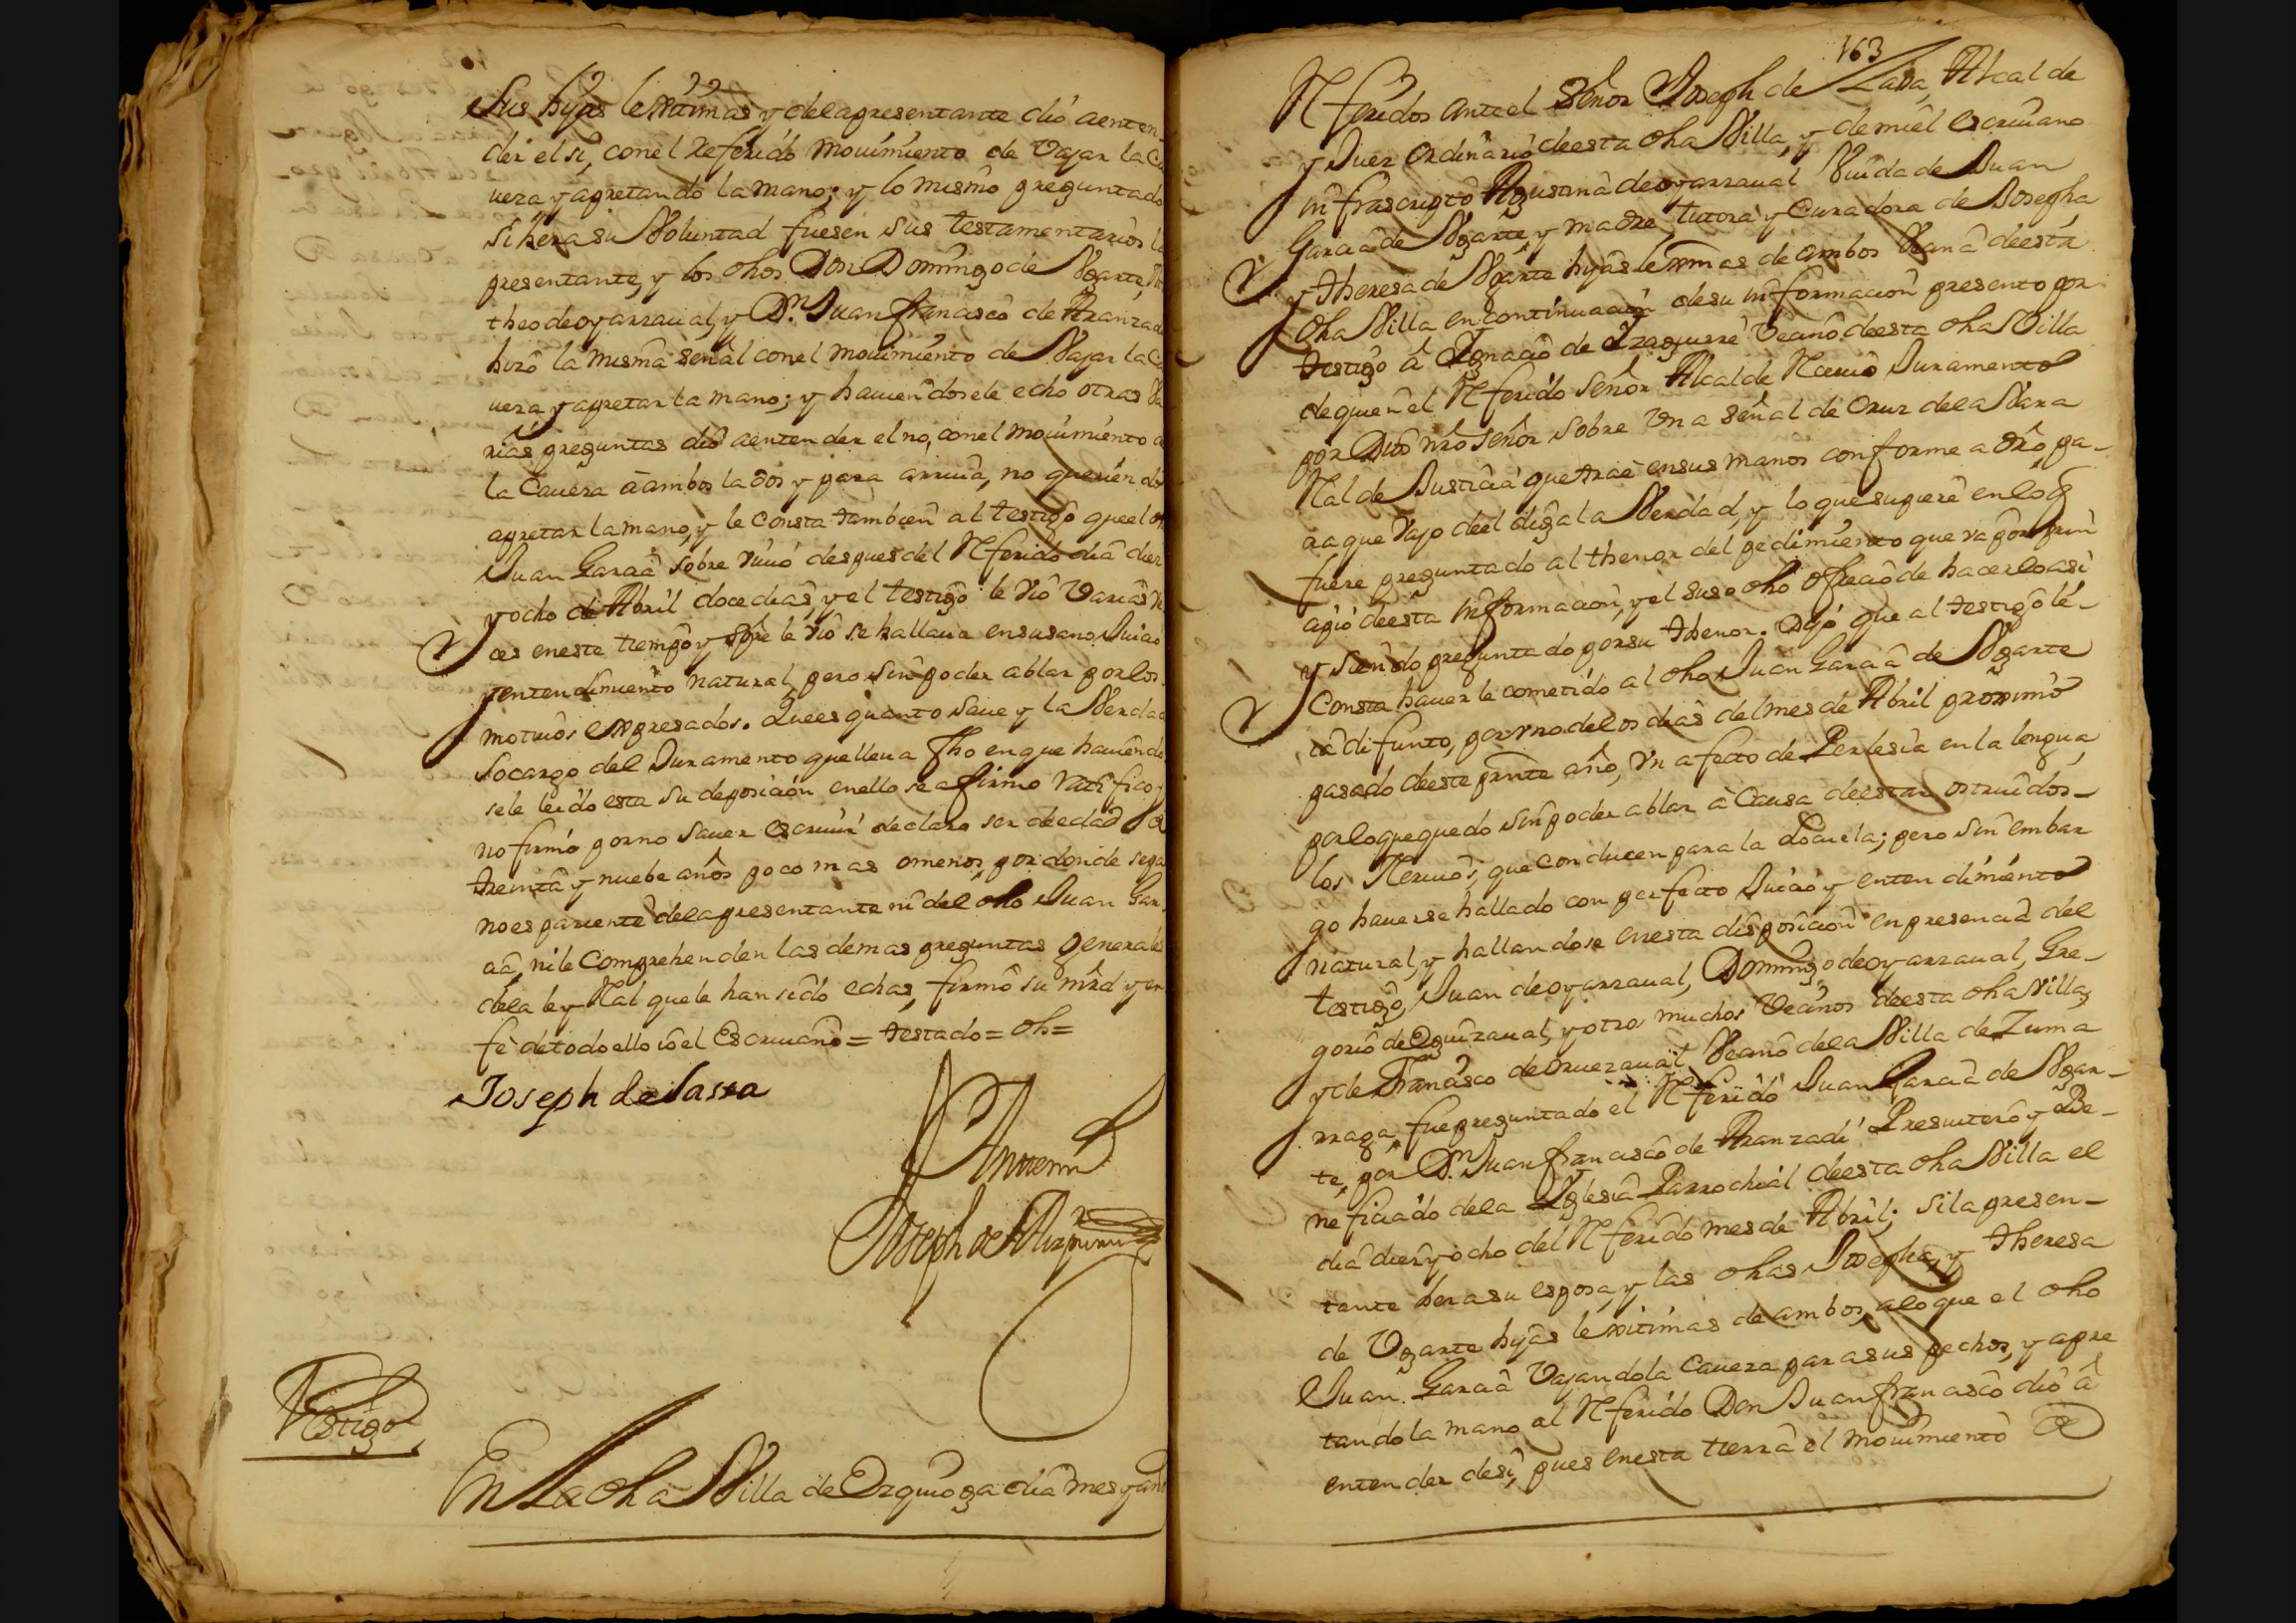 sus hijas lexitimas y dela presentante dió aenten-
der el si, con el referido mouimiento de Vajar la Ca
ueza y apretando la mano; y lo mismo preguntado
si hera su Voluntad fuesen sus testamentarios la
presentante, y los dhos Don Domingo de Vgarte,
theo de oyarzaual, y Dn. Juan francisco de Aranzadi
hizo la misma señal con el mouimiento de Vajar la Ca
ueza, y apretar la mano; y hauiendosele echo otras Va
rias preguntas dió aentender el no, con el mouimiento de
la Caueza a ambos lados y para arriua, no queriendo
apretar la mano, y le consta tambien al testigo que el dho
Juan Garcia sobre viuió despues del Referido dia diez
y ocho de Abril doce dias, y el testigo le vió Varias ve
ces en este tiempo y spre le vió se hallaua en su sano Juicio
y entendimiento natural, pero sin poder ablar por los
motiuos expresados. Que es quanto saue y la Verdad
socargo del Juramento que lleua fho en que hauiendo
sele leido esta su deposición en ello se afirmo ratifico y
no firmó por no sauer escriuir declaro ser de edad de
treinta y nuebe años poco mas omenos, por donde sepa
no es pariente dela presentante ni del dho Juan Gar-
cia, ni le Comprehenden las demas preguntas generales
dela ley Real que le han sido echas, firmó su mrd y en
fe de todo ello io el Escriuano = testado = dh =
Joseph de Lassa
Antemi
Joseph de Aizpuru
Testigo
En la dha Villa de Ezquioga dia mes y año
163
Referidos ante el Señor Joseph de Lasa, Alcalde
y Juez Ordinario de esta dha Villa, y de mi el escriuano
infrascripto Agustina de oyarzaual Viuda de Juan
Garcia de Vgarte, y madre tutora y Curadora de Josepha
y Theresa de Vgarte hijas lexmas de ambos Vecina de esta
dha Villa en continuación de su información presento por
testigo á Ignacio de Izaguirre Vecino de esta dha Villa
de quien el Referido Señor Alcalde Reciuió Juramento
por Dios nro señor sobre Vna señal de Cruz dela Vara
Real de Justicia que trae en sus manos conforme a dro pa-
ra que Vajo de el diga la Verdad, y lo que supiere en lo q
fuere preguntado al thenor del pedimiento que va por prin
cipio de esta información, y el suso dho ofreció de hacerlo asi
y siendo preguntado por su thenor. Dijo que al testigo le-
Consta hauerle cometido al dho Juan Garcia de Vgarte
ia difunto, por vno delos dias del mes de Abril proximo
pasado deeste prnte año, vn afecto de Perlesia en la lengua,
por lo que quedo sin poder ablar á Causa de estar ostruidos-
los Neruios, que conducen para la Locuela; pero sin embar
go hauerse hallado con perfecto Juicio y entendimiento
natural, y hallandose en esta disposición en presencia del
testigo, Juan de oyarzaual, Domingo de oyarzaual, Gre-
gorio de Eguizaual, y otros muchos Vecinos de esta dha Villa,
y de Francisco de Vecino dela Villa de Zuma
rraga, fue preguntado el Referido Juan Garcia de Vgar-
te, por Dn. Juan francisco de Aranzadi Presuitero y Be-
neficiado dela Iglesia Parrochial de esta dha Villa el
dia diez y ocho del Referido mes de Abril; si la presen-
tante hera su esposa, y las dhas Josepha, y Theresa
de Vgarte hijas lexitimas de ambos, alo que el dho
Juan Garcia Vajando la Caueza para sus pechos, y apre
tando la mano al Referido Don Juan francisco dió á
entender de si, pues en esta tierra el mouimiento de